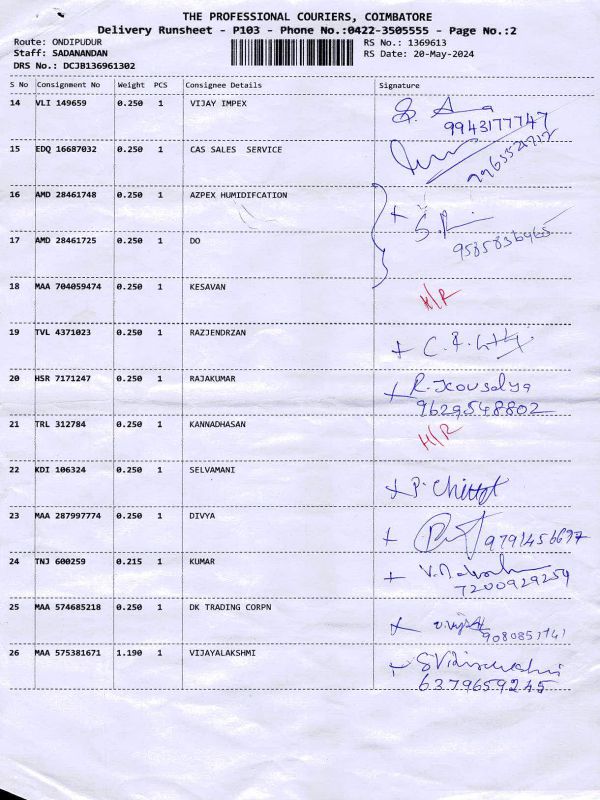 THE PROFESSIONAL COURIERS, COIMBATORE
Delivery Runsheet - P103 - Phone No.:0422-3505555 - Page No.:2
Route: ONDIPUDUR RS No.: 1369613
Staff: SADANANDAN RS Date: 20-May-2024
DRS No.: DCJB136961302
S No Consignment No Weight PCS Consignee Details Signature
14 VLI 149659 0.250 1 VIJAY IMPEX
9943177747
15 EDQ 16687032 0.250 1 CAS SALES SERVICE
16 AMD 28461748 0.250 1 AZPEX HUMIDIFCATION
17 AMD 28461725 0.250 1 DO
9585836465
18 MAA 704059474 0.250 1 KESAVAN H/R
19 TVL 4371023 0.250 1 RAZJENDRZAN
20 HSR 7171247 0.250 1 RAJAKUMAR R. Kousalya
9629548802
21 TRL 312784 0.250 1 KANNADHASAN H/R
22 KDI 106324 0.250 1 SELVAMANI
23 MAA 287997774 0.250 1 DIVYA 9791456697
24 TNJ 600259 0.215 1 KUMAR
7200929259
25 MAA 574685218 0.250 1 DK TRADING CORPN
26 MAA 575381671 1.190 1 VIJAYALAKSHMI
6379659245